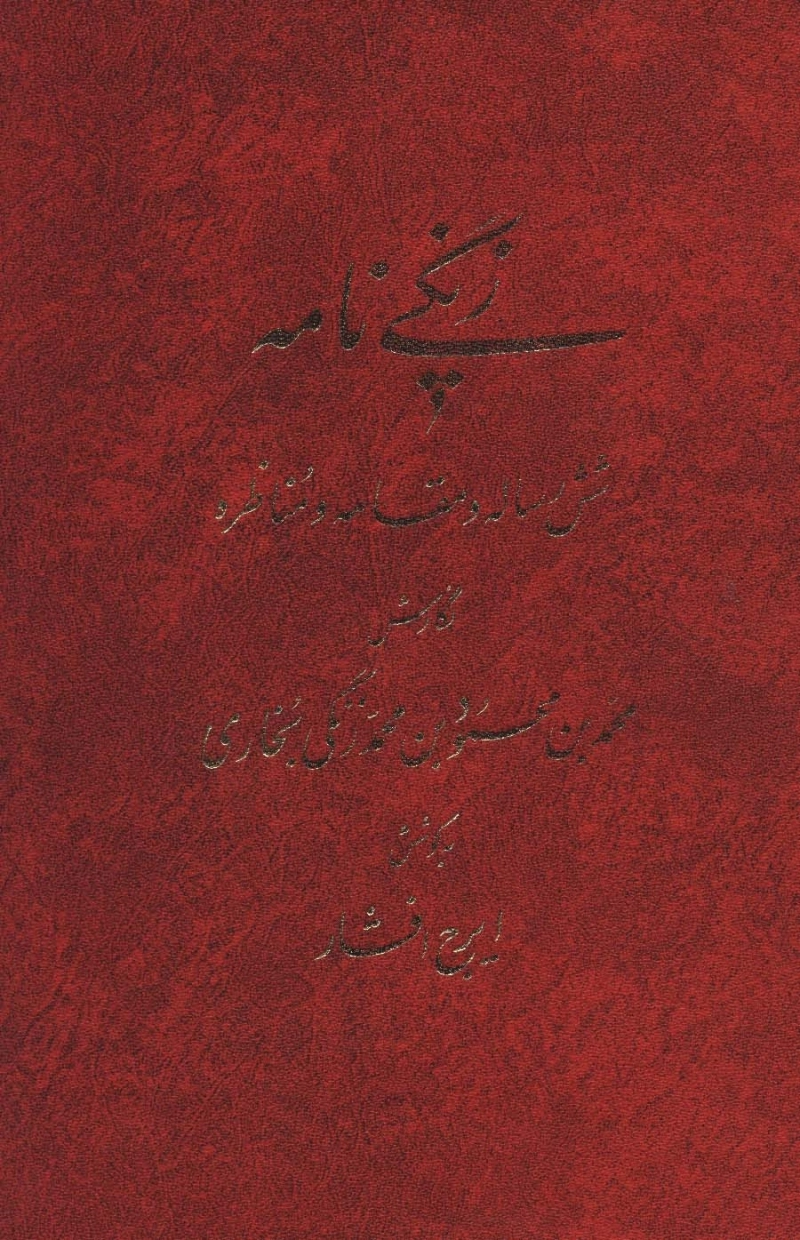 زنگی نامه
شش رساله و مقامه و مناظره
نگارش
محمد بن محمود بن محمد زنگی بخاری
به کوشش
ایرج افشار